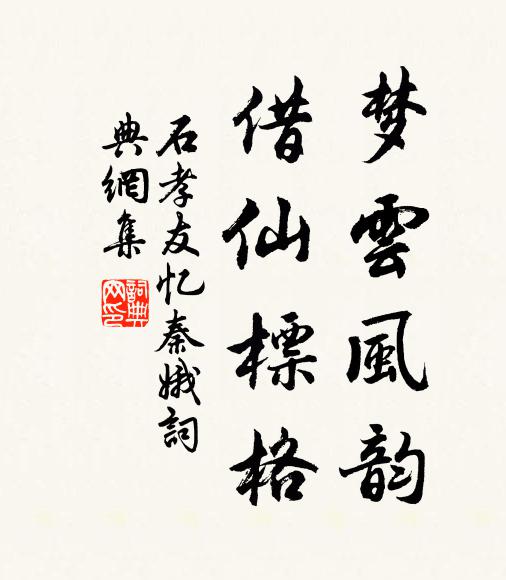 梦雲風韵
借仙標格
石孝友忆秦娥詞
典網集
詞典網印